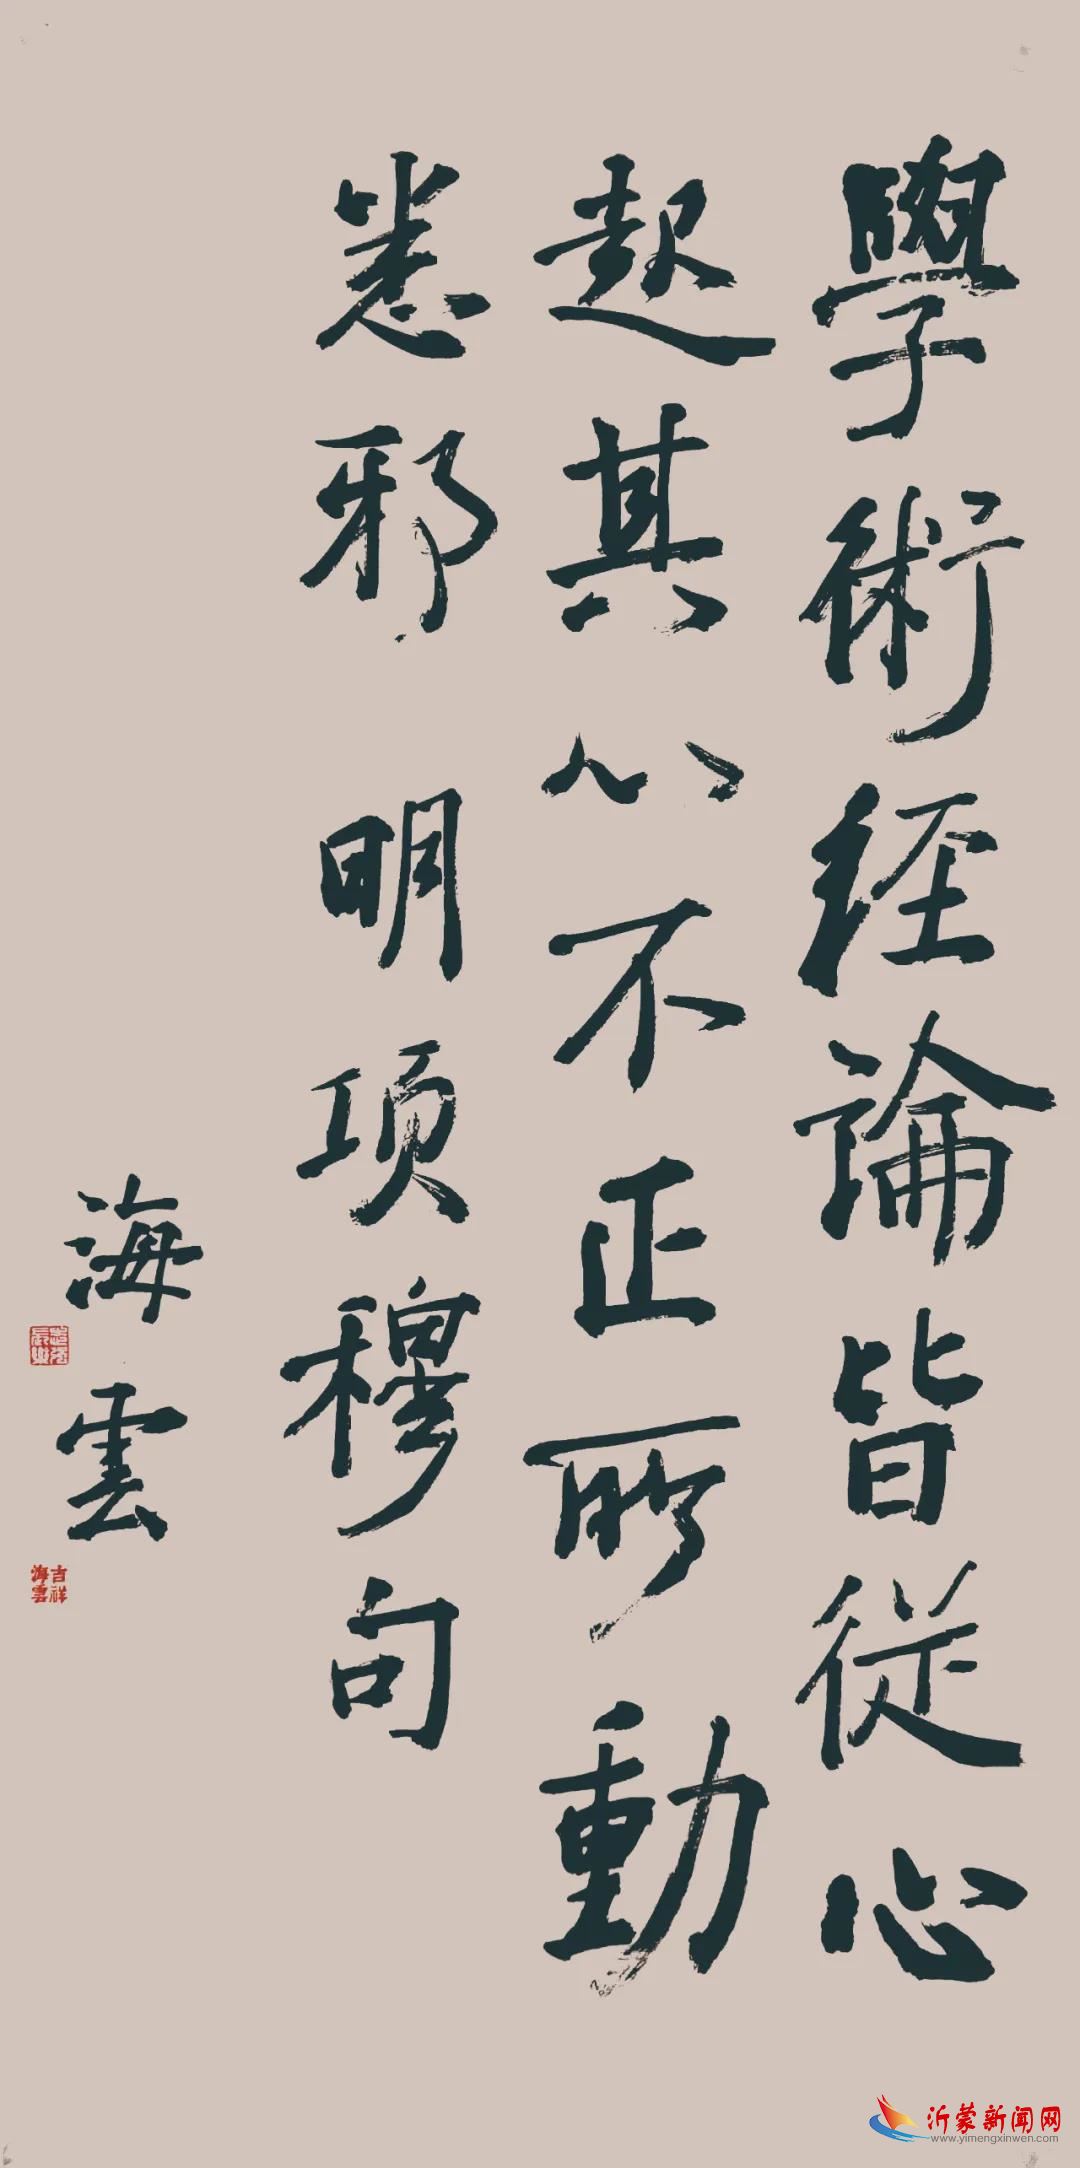 學術经論皆従心
起其心不正所動
悉邪 明项穆句
海雲
吉祥
海雲
沂蒙新闻网
www.yimengxinwen.com